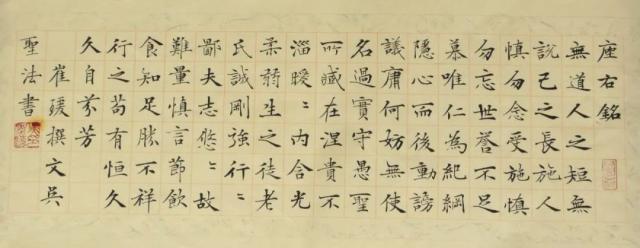 座右銘
無道人之短無
說己之長施人
慎勿念受施慎
勿忘世譽不足
慕唯仁為紀綱
隱心而後動謗
議庸何妨無使
名過實守愚聖
所臧在涅貴不
淄曖〻內含光
柔弱生之徒老
氏誡剛強行〻
鄙夫志悠〻故
難量慎言節飲
食知足勝不祥
行之苟有恒久
久自芬芳
崔瑗撰文吳
聖法書